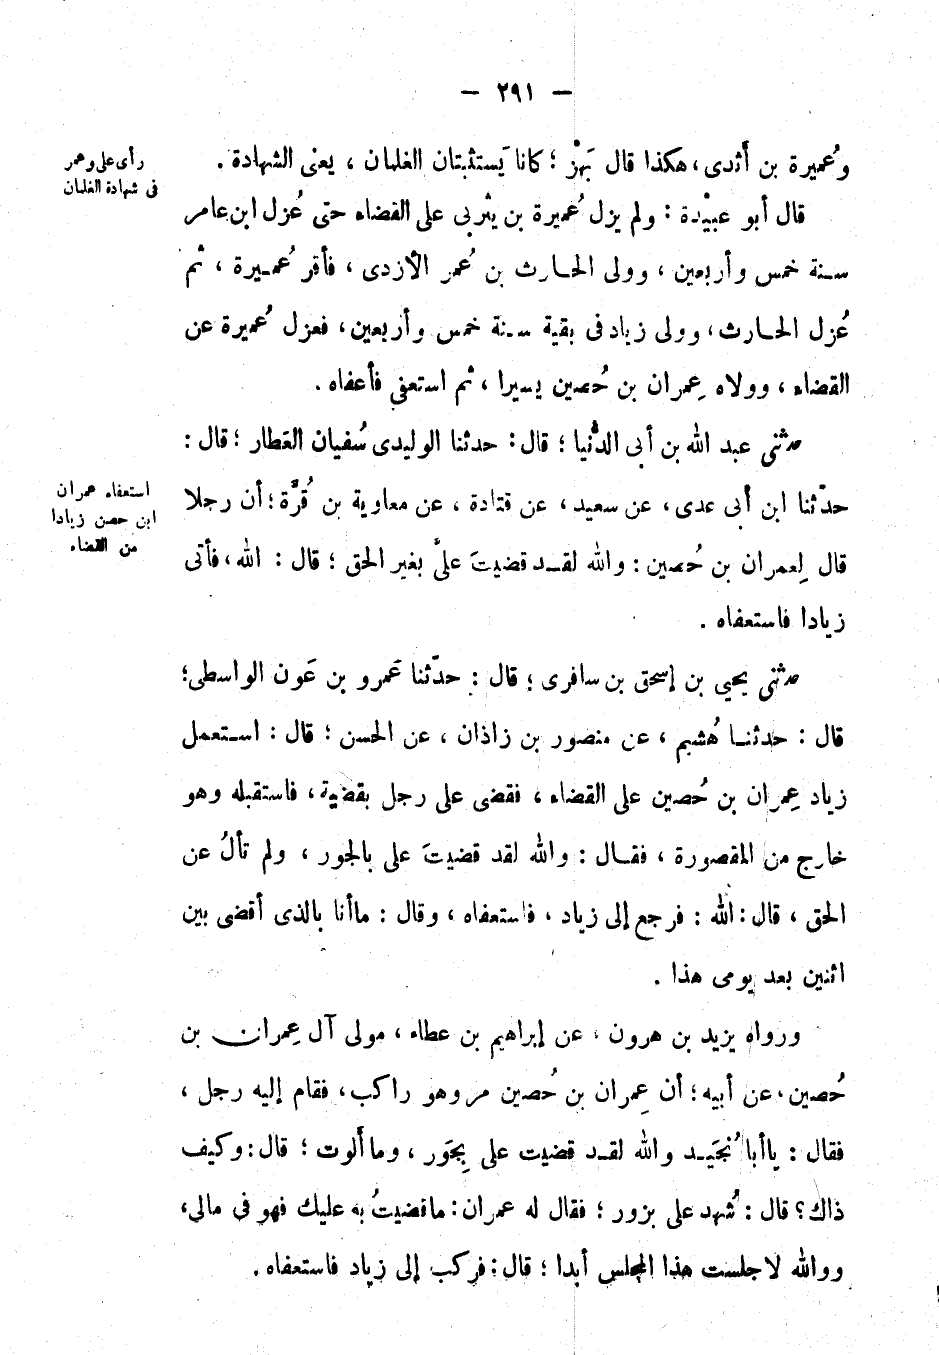 — ٢٩١ —
وعُميرة بن أثدى، هكذا قال بَهْز ؛ كانا يَستثبتان الغلمان ، يعنى الشهادة .
رأى على وعمر
فى شهادة الغلمان
قال أبو عبيْدة : ولم يزل عُميرة بن يثربى على القضاء حتى عُزل ابن عامر
سنة خمس وأربعين ، وولى الحارث بن عُمر الأزدى ، فأقر عُميرة ، ثم
عُزل الحارث ، وولى زياد فى بقية سنة خمس وأربعين ، فعزل عُميرة عن
القضاء ، وولاه عِمران بن حُصين يسيرا ، ثم استعفى فأعفاه .
حدثنى عبد الله بن أبى الدُّنيا ؛ قال : حدثنا الوليدى سُفيان العَطار ؛ قال :
حدّثنا ابن أبى عدى ، عن سعيد ، عن قتادة ، عن معاوية بن قُرَّة ؛ أن رجلا
استعفاء عمران
ابن حصن زيادا
من القضاء
قال لِعمران بن حُصين : والله لقد قضيتَ علىَّ بغير الحق ؛ قال : الله ، فأتى
زيادا فاستعفاه .
حدثنى يحيى بن إسحق بن سافرى ؛ قال : حدّثنا عَمرو بن عَون الواسطى ؛
قال : حدثنا هُشيم ، عن منصور بن زاذان ، عن الحسن ؛ قال : استعمل
زياد عِمران بن حُصين على القضاء ، فقضى على رجل بقضية ، فاستقبله وهو
خارج من المقصورة ، فقال : والله لقد قضيتَ على بالجور ، ولم تألُ عن
الحق ، قال : الله : فرجع إلى زياد ، فاستعفاه ، وقال : ما أنا بالذى أقضى بين
اثنين بعد يومى هذا .
ورواه يزيد بن هرون ، عن إبراهيم بن عطاء ، مولى آل عِمران بن
حُصين ، عن أبيه ؛ أن عِمران بن حُصين مر وهو راكب ، فقام إليه رجل ،
فقال : يا أبا نُجَيد والله لقد قضيت على بِجَور ، وما ألوت ؛ قال : وكيف
ذاك ؟ قال : شُهد على بزور ؛ فقال له عمران : ما قضيتُ به عليك فهو فى مالى ،
ووالله لا جلست هذا المجلس أبدا ؛ قال : فركب إلى زياد فاستعفاه .